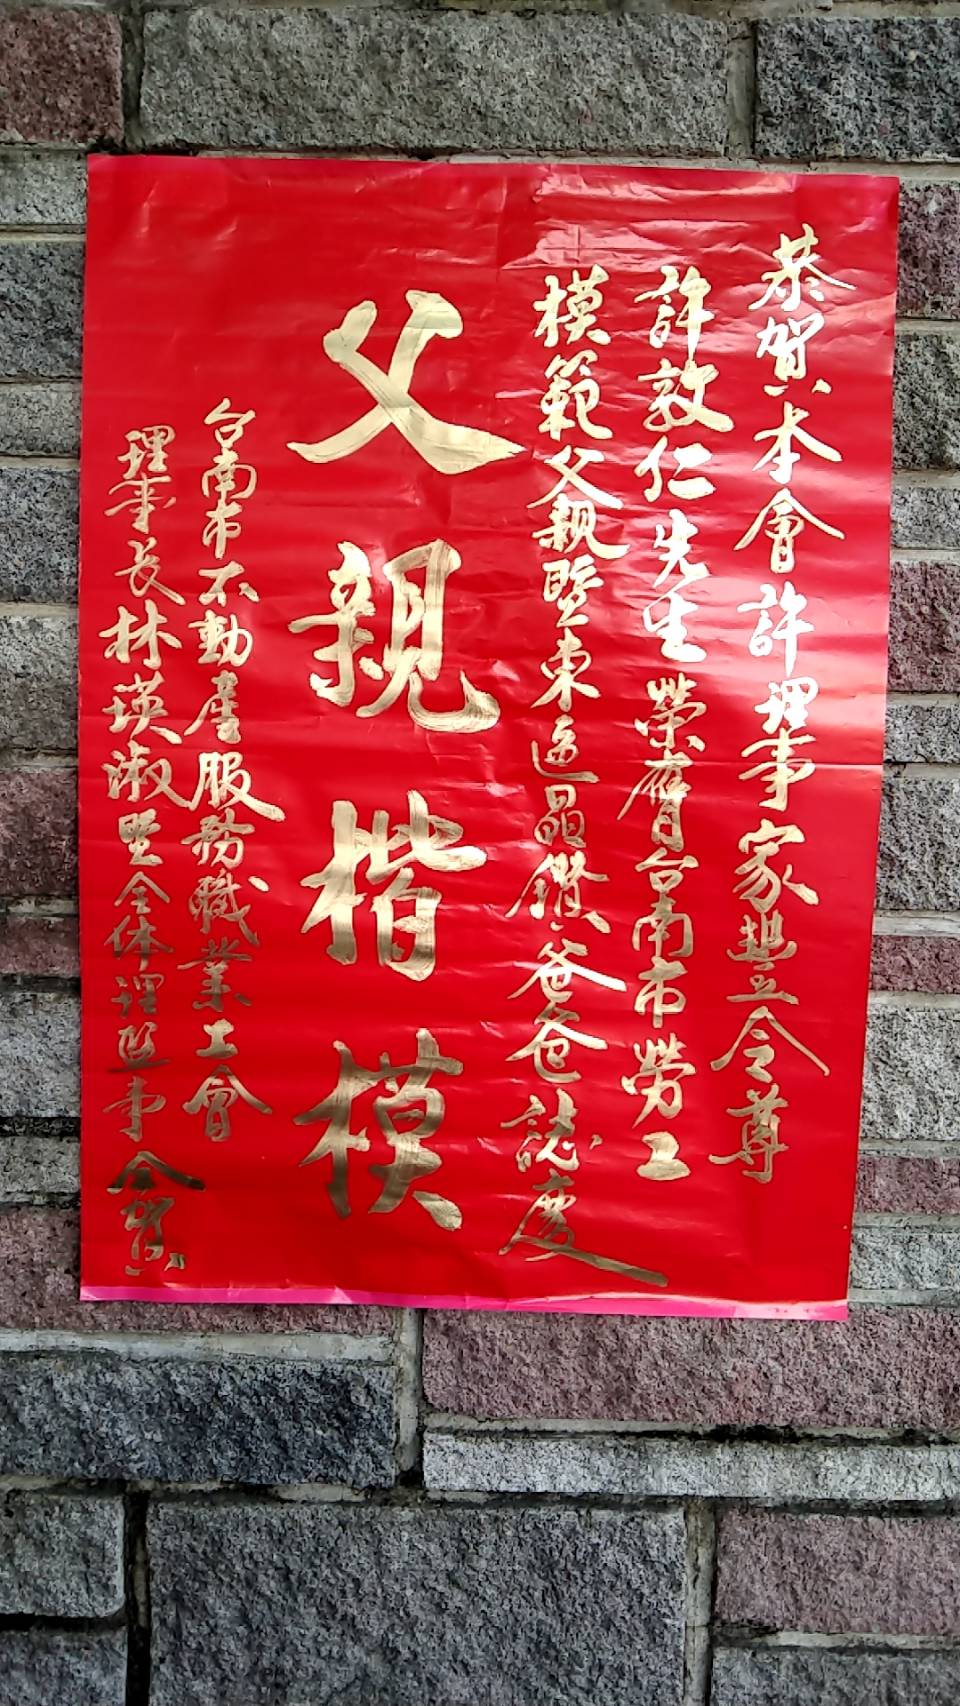 恭賀本會許理事家豐令尊
許敦仁先生榮膺台南市勞工
模範父親暨東區晶鑽爸爸誌慶
父親楷模
台南市不動產服務職業工會
理事長林瑛淑暨全体理監事仝賀